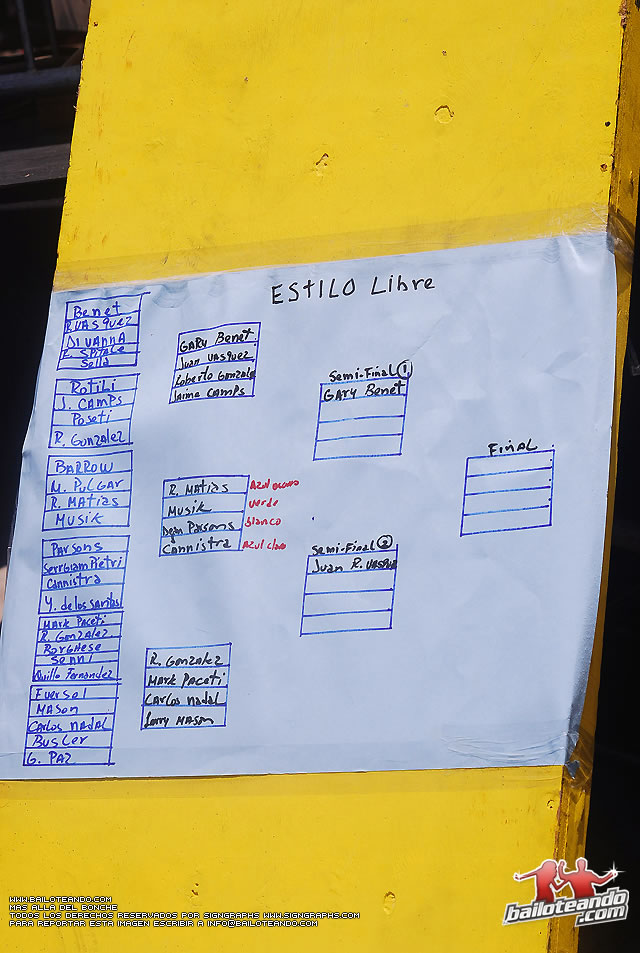 ESTILO Libre
Benet
R. VASquez
DI VANNA
E. SPITALE
Solla
Rotili
J. CAMPS
Poseti
R. GonzaLez
BARROW
M. PiLGAr
R. MATiAS
MUSiK
PArSons
SerrGiam Pietri
CAnnistra
Y. de los santos
MArk PAceti
R. GonzALez
BorGHese
Senni
Quillo Fernandez
Fuersel
MASon
CArlos nAdAL
BusLer
G. PAZ
GARy Benet
Juan VASquez
Roberto GonzaLe
Jaime CAMPS
R. MATiAS Azul oscuro
MUSiK verde
Dejan PArsons Blanco
CAnnistra Azul claro
R. GonzaLez
MArk PAceti
CArlos nadal
Larry MASon
Semi-FinAL 1
GARy Benet
Semi-FinaL 2
Juan R. VASque
FiNAL
WWW.BAILOTEANDO.COM
MAS ALLA DEL BONCHE
TODOS LOS DERECHOS RESERVADOS POR SIGNGRAPHS WWW.SIGNGRAPHS.COM
PARA REPORTAR ESTA IMAGEN ESCRIBIR A INFO@BAILOTEANDO.COM
bailoteando.com